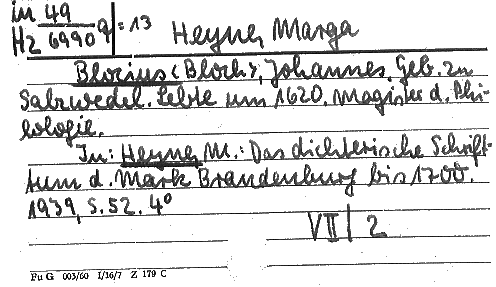 in 49
Hz 6990 q :13
Heyne, Marga
Blocius (Bloch), Johannes. Geb. zu
Salzwedel. Lebte um 1620, Magister d. Phi-
lologie.
In: Heyne, M.: Das dichterische Schrift-
tum d. Mark Brandenburg bis 1700.
1939, S. 52. 4°
VII | 2
Fu G 003/60 I/16/7 Z 179 C